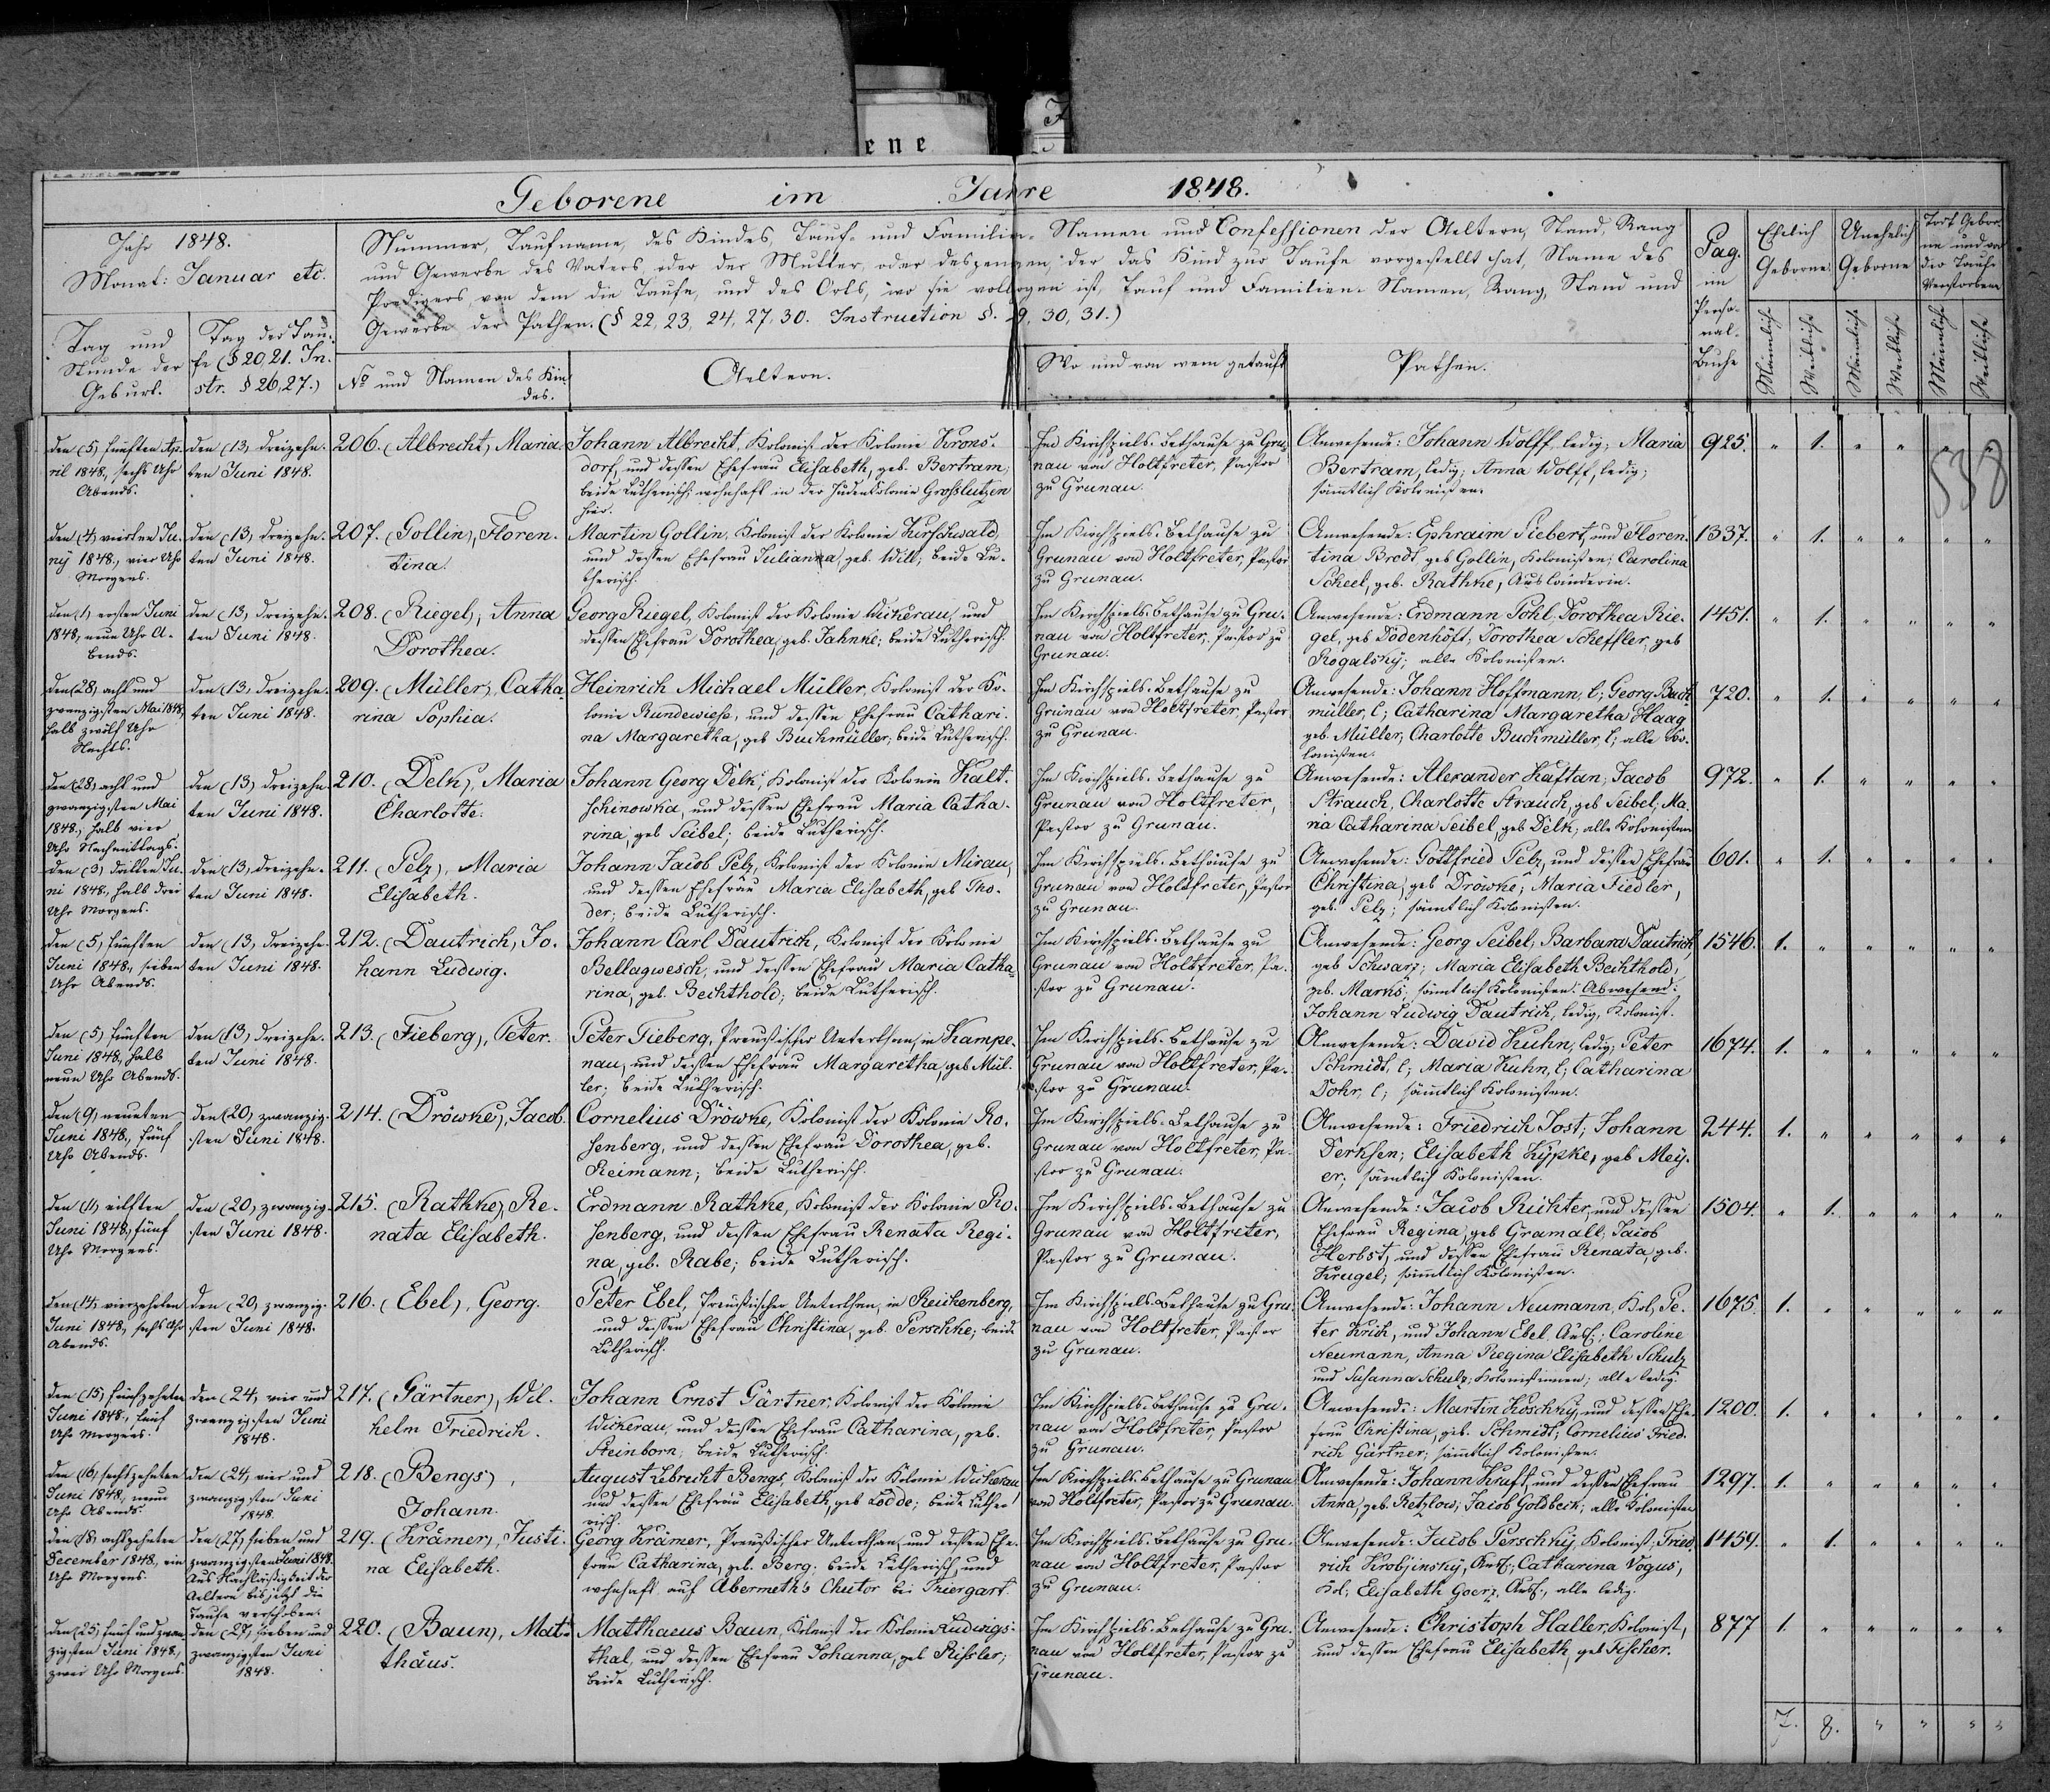 ene
Geborene im Jahre 1848.
Jahr 1848.
Monat: Januar etc.
Nummer, Taufname, des Kindes, Tauf- und Familien-Namen und Confessionen der Aeltern, Stand, Rang
und Gewerbe des Vaters, oder der Mutter, oder desjenigen, der das Kind zur Taufe vorgestellt hat, Name des
Predigers, von dem die Taufe, und des Orts, wo sie vollzogen ist, Tauf und Familien-Namen, Rang, Stand und
Gewerbe der Pathen. (§ 22, 23, 24, 27, 30. Instruction §. 29, 30, 31.)
Tag und
Stunde der
Geburt.
Tag der Tau-
fe (§ 20, 21. In-
str. § 26, 27.)
No und Namen des Kin-
des.
Aeltern.
Wo und von wem getauft
Pathen.
Pag.
im
Perso-
nal-
Buche
Ehelich
Geborne
Unehelich
Geborne
Todt Gebor-
ne und vor
der Taufe
Verstorbene
Männliche
Weibliche
Männliche
Weibliche
Männliche
Weibliche
538
den (5) fünften Ap-
ril 1848, sechs Uhr
Abends.
den (13) dreizehn-
ten Juni 1848.
206. (Albrecht), Maria.
Johann Albrecht, Kolonist der Kolonie Krons-
dorf, und dessen Ehefrau Elisabeth, geb. Bertram;
beide Lutherisch; wohnhaft in der Judenkolonie Grosslutzen
hier.
Im Kirchspiels-Bethause zu Gru-
nau von Holtfreter, Pastor
zu Grunau.
Anwesende: Johann Wolff, ledig; Maria
Bertram, ledig; Anna Wolff, ledig;
sämmtlich Kolonisten.
925. " 1. " "
den (4) vierten Ju-
ny 1848, vier Uhr
Morgens.
den (13) dreizehn-
ten Juni 1848.
207. (Gollin), Floren-
tina.
Martin Gollin, Kolonist der Kolonie Kirschwald,
und dessen Ehefrau Julianna, geb. Will; beide Lu-
therisch.
Im Kirchspiels-Bethause zu
Grunau von Holtfreter, Pastor
zu Grunau.
Anwesende: Ephraim Siebert, und Floren-
tina Brodt, geb Gollin, Kolonisten; Carolina
Scheel, geb. Rathke, Ausländerin.
1337. " 1. " " " "
den (1) ersten Juni
1848, neun Uhr A-
bends.
den (13) dreizehn-
ten Juni 1848.
208. (Riegel), Anna
Dorothea.
Georg Riegel, Kolonist der Kolonie Wickerau, und
dessen Ehefrau Dorothea, geb. Jahnke; beide Lutherisch.
Im Kirchspiels-Bethause zu Gru-
nau von Holtfreter, Pastor zu
Grunau.
Anwesende: Erdmann Pohl, Dorothea Rie-
gel, geb Dodenhöft, Dorothea Scheffler, geb
Rogalsky; alle Kolonisten.
1451. " 1. " " " "
den (28) acht und
zwanzigsten Mai 1848,
halb zwölf Uhr
Nachts.
den (13) dreizehn-
ten Juni 1848.
209. (Müller), Catha-
rina Sophia.
Heinrich Michael Müller, Kolonist der Ko-
lonie Rundewiese, und dessen Ehefrau Cathari-
na Margaretha, geb Buchmüller; beide Lutherisch.
Im Kirchspiels-Bethause zu
Grunau von Holtfreter, Pastor
zu Grunau.
Anwesende: Johann Hoffmann, l; Georg Buch-
müller, l; Catharina Margaretha Haag
geb. Müller, Charlotte Buchmüller, l; alle Ko-
lonisten.
720. " 1. " " " "
den (28) acht und
zwanzigsten Mai
1848, halb vier
Uhr Nachmittags.
den (13) dreizehn-
ten Juni 1848.
210. (Delk), Maria
Charlotte.
Johann Georg Delk, Kolonist der Kolonie Kalt-
schinowka, und dessen Ehefrau Maria Catha-
rina, geb Seibel; beide Lutherisch.
Im Kirchspiels-Bethause zu
Grunau von Holtfreter,
Pastor zu Grunau.
Anwesende: Alexander Kaftan, Jacob
Strauch, Charlotte Strauch, geb Seibel, Ma-
ria Catharina Seibel, geb Delk; alle Kolonisten
972. " 1. " " " "
den (3) dritten Ju-
ni 1848, halb drei
Uhr Morgens.
den (13) dreizehn-
ten Juni 1848.
211. (Pelz), Maria
Elisabeth.
Johann Jacob Pelz, Kolonist der Kolonie Mirau,
und dessen Ehefrau Maria Elisabeth, geb Tho-
der; beide Lutherisch.
Im Kirchspiels-Bethause zu
Grunau von Holtfreter, Pastor
zu Grunau.
Anwesende: Gottfried Pelz, und dessen Ehefrau
Christina, geb Dröwke; Maria Fiedler,
geb. Pelz; sämtlich Kolonisten.
601. " 1. " " " "
den (5) fünften
Juni 1848, sieben
Uhr Abends.
den (13) dreizehn-
ten Juni 1848.
212. (Dautrich, Jo-
hann Ludwig.
Johann Carl Dautrich, Kolonist der Kolonie
Bellagwesch, und dessen Ehefrau Maria Catha-
rina, geb. Bechthold; beide Lutherisch.
Im Kirchspiels-Bethause zu
Grunau von Holtfreter, Pa-
stor zu Grunau.
Anwesende: Georg Seibel, Barbara Dautrich,
geb Schwarz; Maria Elisabeth Bechthold,
geb. Marks, sämtlich Kolonisten. Abwesend:
Johann Ludwig Dautrich, ledig, Kolonist.
1546. 1. " " " " "
den (5) fünften
Juni 1848, halb
neun Uhr Abends.
den (13) dreizehn-
ten Juni 1848.
213. (Fieberg), Peter.
Peter Fieberg, Preussischer Unterthan, in Kampe-
nau, und dessen Ehefrau Margaretha, geb Mül-
ler; beide Lutherisch.
Im Kirchspiels-Bethause zu
Grunau von Holtfreter, Pa-
stor zu Grunau.
Anwesende: David Kuhn, ledig; Peter
Schmidt, l; Maria Kuhn, l; Catharina
Dohr, l; sämtlich Kolonisten.
1674. 1. " " " " "
den (9) neunten
Juni 1848, fünf
Uhr Abends.
den (20) zwanzig-
sten Juni 1848.
214. (Dröwke), Jacob.
Cornelius Dröwke, Kolonist der Kolonie Ro-
senberg, und dessen Ehefrau Dorothea, geb.
Reimann; beide Lutherisch.
Im Kirchspiels-Bethause zu
Grunau von Holtfreter, Pa-
stor zu Grunau.
Anwesende: Friedrich Jost; Johann
Derksen; Elisabeth Kypke, geb Mey-
er; sämtlich Kolonisten.
244. 1. " " " " "
den (11) eilften
Juni 1848, fünf
Uhr Morgens.
den (20) zwanzig-
sten Juni 1848.
215. (Rathke), Re-
nata Elisabeth.
Erdmann Rathke, Kolonist der Kolonie Ro-
senberg, und dessen Ehefrau Renata Regi-
na, geb. Rabe; beide Lutherisch.
Im Kirchspiels-Bethause zu
Grunau von Holtfreter,
Pastor zu Grunau.
Anwesende: Jacob Richter, und dessen
Ehefrau Regina, geb Gramall; Jacob
Herbst, und dessen Ehefrau Renata, geb.
Krugel; sämtlich Kolonisten.
1504. " 1. " " " "
den (14) vierzehnten
Juni 1848, sechs Uhr
Abends.
den (20) zwanzig-
sten Juni 1848.
216. (Ebel), Georg.
Peter Ebel, Preussischer Unterthan, in Reichenberg,
und dessen Ehefrau Christina, geb. Perschke; beide
Lutherisch.
Im Kirchspiels-Bethause zu Gru-
nau von Holtfreter, Pastor
zu Grunau.
Anwesende: Johann Neumann, Kol, Pe-
ter Krich, und Johann Ebel, Ausl.; Caroline
Neumann, Anna Regina Elisabeth Schulz
und Susanna Schulz, Kolonistinnen; alle ledig.
1675. 1. " " " " "
den (15) fünfzehnten
Juni 1848, fünf
Uhr Morgens.
den (24) vier und
zwanzigsten Juni
1848.
217. (Gärtner), Wil-
helm Friedrich.
Johann Ernst Gärtner, Kolonist der Kolonie
Wickerau, und dessen Ehefrau Catharina, geb.
Steinborn; beide Lutherisch.
Im Kirchspiels-Bethause zu Gru-
nau von Holtfreter, Pastor
zu Grunau.
Anwesende: Martin Koschky, und dessen Ehe-
frau Christina, geb. Schmidt; Cornelius Fried-
rich Gärtner; sämtlich Kolonisten.
1200. 1. " " " " "
den (16) sechszehnten
Juni 1848, neun
Uhr Abends.
den (24) vier und
zwanzigsten Juni
1848.
218. (Bengs),
Johann.
August Lebrecht Bengs, Kolonist der Kolonie Wickerau,
und dessen Ehefrau Elisabeth, geb Lodde; beide Luthe-
risch.
Im Kirchspiels-Bethause zu Grunau
von Holtfreter, Pastor zu Grunau.
Anwesende: Johann Kraft, und dessen Ehefrau
Anna, geb. Retzlow; Jacob Goldbeck; alle Kolonisten
1297. 1. " " " " "
den (18) achtzehnten
December 1848, ein
Uhr Morgens.
den (27) sieben und
zwanzigsten Juni 1848.
Aus Nachlässigkeit der
Aeltern bis jetzt die
Taufe verschoben.
219. (Krämer), Justi-
na Elisabeth.
Georg Krämer, Preussischer Unterthan, und dessen Ehe-
frau Catharina, geb. Berg; beide Lutherisch, und
wohnhaft auf Abermeth's Chutor bei Thiergart.
Im Kirchspiels-Bethause zu Gru-
nau von Holtfreter, Pastor
zu Grunau.
Anwesende: Jacob Perschky, Kolonist; Fried-
rich Krobjinsky, Ausl.; Catharina Vogus,
Kol; Elisabeth Goerz, Ausl., alle ledig.
1459. " 1. " " " "
den (25) fünf und zwan-
zigsten Juni 1848,
zwei Uhr Morgens.
den (27) sieben und
zwanzigsten Juni
1848.
220. (Baun), Mat-
thäus.
Matthaeus Baun, Kolonist der Kolonie Ludwigs-
thal, und dessen Ehefrau Johanna, geb Rissler;
beide Lutherisch.
Im Kirchspiels-Bethause zu Gru-
nau von Holtfreter, Pastor zu
Grunau.
Anwesende: Christoph Haller, Kolonist,
und dessen Ehefrau Elisabeth, geb Fischer.
877 1. " " " " "
7. 8. " " " "